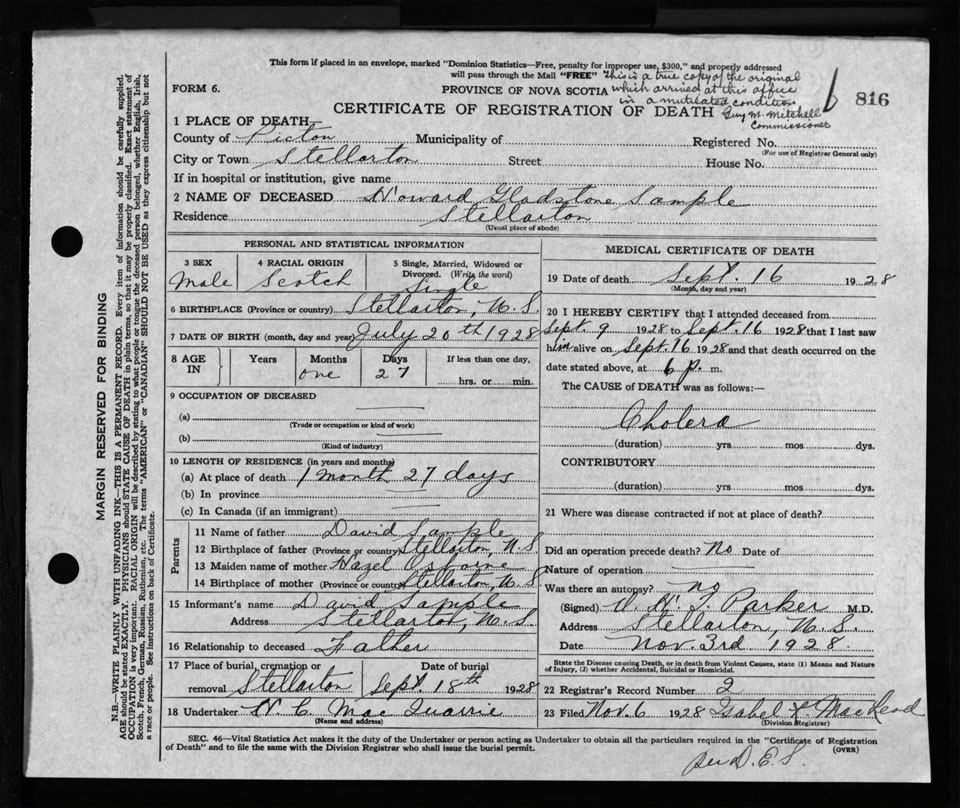 This form if placed in an envelope, marked "Dominion Statistics—Free, penalty for improper use, $300," and properly addressed
will pass through the Mail "FREE" This is a true copy of the original
FORM 6. PROVINCE OF NOVA SCOTIA which arrived at this office
in a mutilated condition
CERTIFICATE OF REGISTRATION OF DEATH Guy M. Mitchell
Commissioner
816
1 PLACE OF DEATH
County of Picton Municipality of Registered No.
(For use of Registrar General only)
City or Town Stellarton Street House No.
If in hospital or institution, give name
2 NAME OF DECEASED Howard Gladstone Sample
Residence Stellarton
(Usual place of abode)
PERSONAL AND STATISTICAL INFORMATION
3 SEX 4 RACIAL ORIGIN 5 Single, Married, Widowed or
Divorced. (Write the word)
Male Scotch Single
6 BIRTHPLACE (Province or country) Stellarton, N.S.
7 DATE OF BIRTH (month, day and year) July 20th 1928
8 AGE IN Years Months Days If less than one day,
one 27 hrs. or min.
9 OCCUPATION OF DECEASED
(a)
(Trade or occupation or kind of work)
(b)
(Kind of industry)
10 LENGTH OF RESIDENCE (in years and months)
(a) At place of death 1 month 27 days
(b) In province
(c) In Canada (if an immigrant)
Parents
11 Name of father David Sample
12 Birthplace of father (Province or country) Stellarton, N.S.
13 Maiden name of mother Hazel Osborne
14 Birthplace of mother (Province or country) Stellarton, N.S.
15 Informant's name David Sample
Address Stellarton, N.S.
16 Relationship to deceased Father
17 Place of burial, cremation or Date of burial
removal Stellarton Sept. 18th 1928
18 Undertaker W. C. Mac Quarrie
(Name and address)
MEDICAL CERTIFICATE OF DEATH
19 Date of death Sept. 16 1928
(Month, day and year)
20 I HEREBY CERTIFY that I attended deceased from
Sept. 9 1928 to Sept. 16 1928 that I last saw
him alive on Sept. 16 1928 and that death occurred on the
date stated above, at 6 p. m.
The CAUSE of DEATH was as follows:—
Cholera
(duration) yrs mos dys.
CONTRIBUTORY
(duration) yrs. mos. dys.
21 Where was disease contracted if not at place of death?
Did an operation precede death? No Date of
Nature of operation
Was there an autopsy? no
(Signed) Parker M.D.
Address Stellarton, N.S.
Date Nov. 3rd 1928.
State the Disease causing Death, or in death from Violent Causes, state (1) Means and Nature
of Injury, (2) whether Accidental, Suicidal or Homicidal.
22 Registrar's Record Number 2
23 Filed Nov. 6 1928 Isabel F. MacLeod
(Division Registrar)
SEC. 46—Vital Statistics Act makes it the duty of the Undertaker or person acting as Undertaker to obtain all the particulars required in the "Certificate of Registration
of Death" and to file the same with the Division Registrar who shall issue the burial permit. (OVER)
per D. E. S.
MARGIN RESERVED FOR BINDING
N.B.—WRITE PLAINLY WITH UNFADING INK—THIS IS A PERMANENT RECORD. Every item of information should be carefully supplied.
AGE should be stated EXACTLY. PHYSICIANS should STATE CAUSE OF DEATH in plain terms, so that it may be properly classified. Exact statement of
OCCUPATION is very important. RACIAL ORIGIN will be described by stating to what people or tongue the deceased person belonged, whether English, Irish,
Scotch, French, German, Russian, Ruthenian, etc. The terms "AMERICAN" or "CANADIAN" SHOULD NOT BE USED as they express citizenship but not
a race or people. See instructions on back of Certificate.